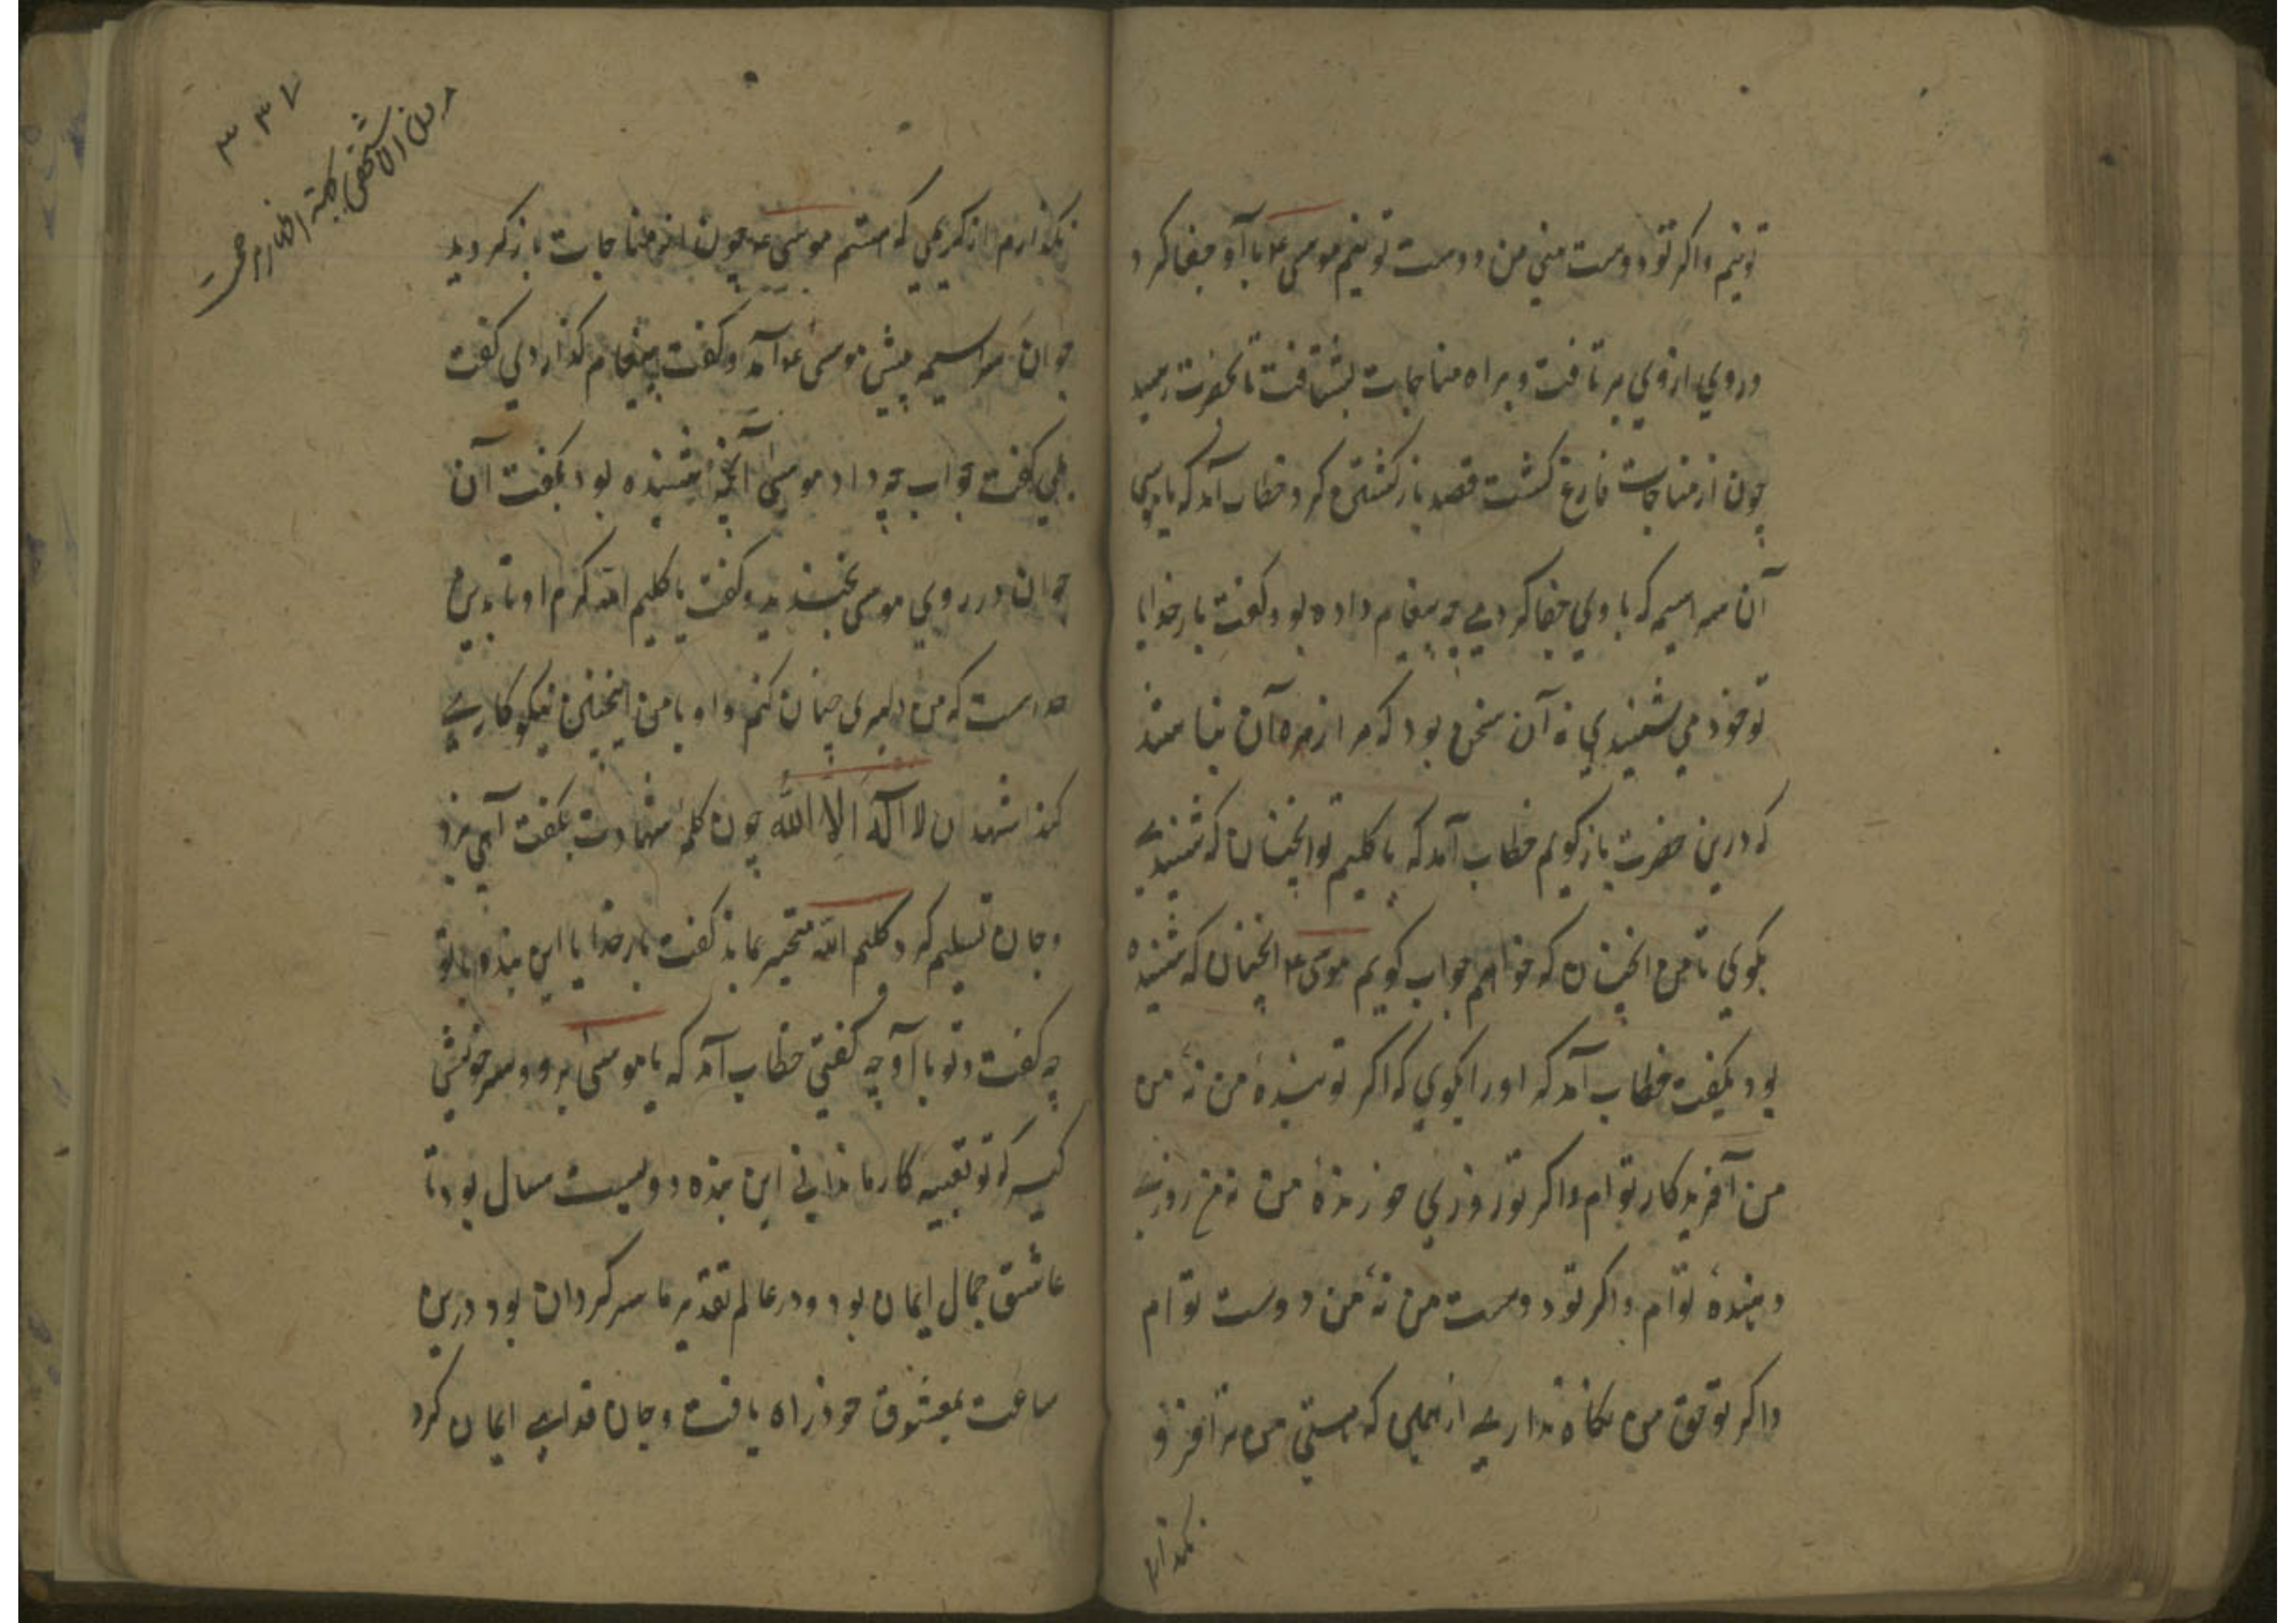 تو نیم و اکر تو دوست منی من دوست تو نیم موسی ع با او جفا کرد
و روی ازوی بر تافت و براه مناجات بشتافت تا بحضرت رسید
چون از مناجات فارغ کشت قصد باز کشتن کرد خطاب آمد که یا موسی
آن سراسیمه که با وی جفا کردی چه پیغام داده بود کفت بار خدایا
تو خود می شنیدی نه آن سخن بود که مرا زهره آن باشد
که درین حضرت باز کویم خطاب آمد که یا کلیم تو انچنان که شنیدی
بکوی تا من انچنان که خواهم جواب کویم موسی ع انچنان که شنیده
بود بکفت خطاب آمد که او را بکوی که اکر تو بندهٔ من نهٔ من
من آفریدکار توام و اکر تو روزی خورندهٔ من نهٔ من روزی
دهندهٔ توام و اکر تو دوست من نهٔ من دوست توام
و اکر تو حق من نکاه نداری از که هستی من ترا فرو
نکذارم
۳۳۷
نکذارم از کریمی که هستم موسی ع چون از مناجات باز کردید
جوان سراسیمه پیش موسی ع آمد و کفت پیغام کذاردی کفت
بلی کفت جواب چه داد موسی آنچه شنیده بود بکفت آن
جوان در روی موسی بخندید و کفت یا کلیم الله کرم او تا بدین
حد است که من دلیری چنان کنم و او با من اینچنین نیکوکاری
کند اشهد ان لا اله الا الله چون کلمه شهادت بکفت آهی بزد
و جان تسلیم کرد کلیم الله متحیر بماند کفت بار خدایا این بنده با تو
چه کفت و تو با او چه کفتی خطاب آمد که یا موسی برو و سر خویش
کیر که تو تعبیه کار ما ندانی این بنده دویست سال بود تا
عاشق جمال ایمان بود و در عالم تقدیر ما سرکردان بود درین
ساعت بمعشوق خود راه یافت و جان فدای ایمان کرد